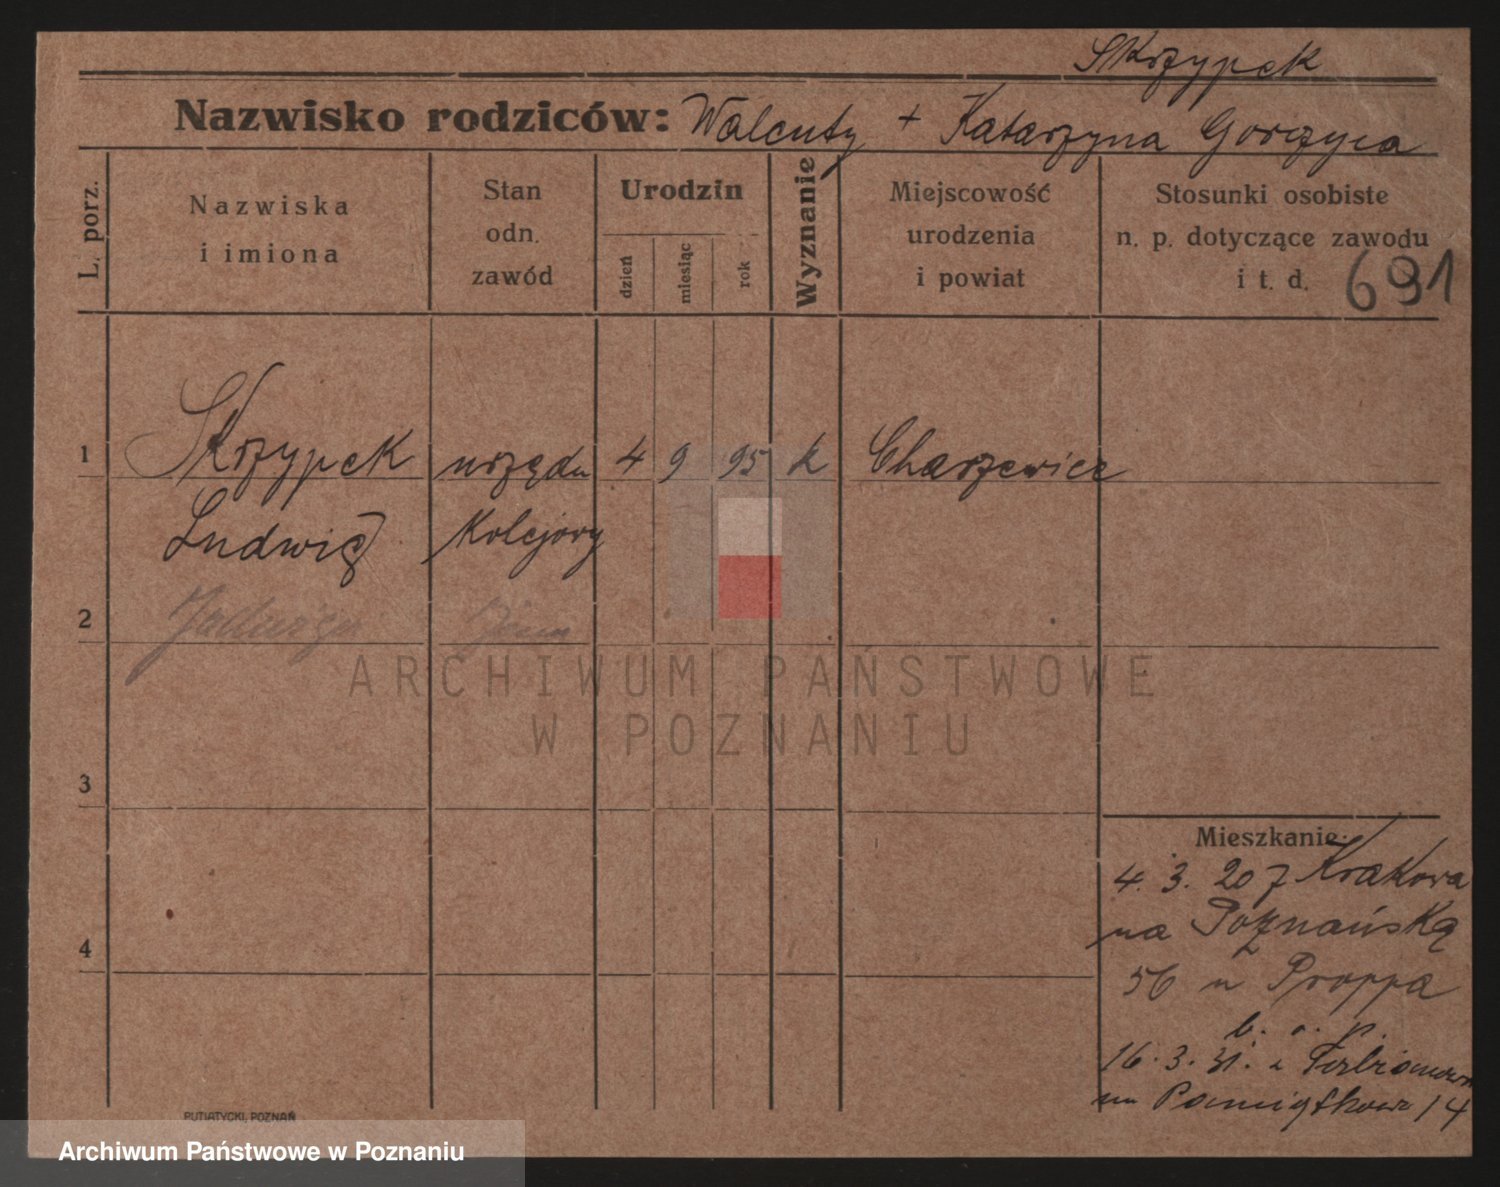 Skrzypek
Nazwisko rodziców: Walenty + Katarzyna Gorzyca
L. porz.
Nazwiska
i imiona
Stan
odn.
zawód
Urodzin
dzień
miesiąc
rok
Wyznanie
Miejscowość
urodzenia
i powiat
Stosunki osobiste
n. p. dotyczące zawodu
i t. d.
691
1 Skrzypek urzędn 4 9 95 k Charzewice
Ludwig Kolejowy
2 Jadwiga
3
4
Mieszkanie:
4. 3. 20 z Krakowa
na Poznańską
56 u Proppa
b. o. p.
16. 3. 31. z
na Pamiątkowa 14
PUTIATYCKI, POZNAŃ
ARCHIWUM PAŃSTWOWE
W POZNANIU
Archiwum Państwowe w Poznaniu